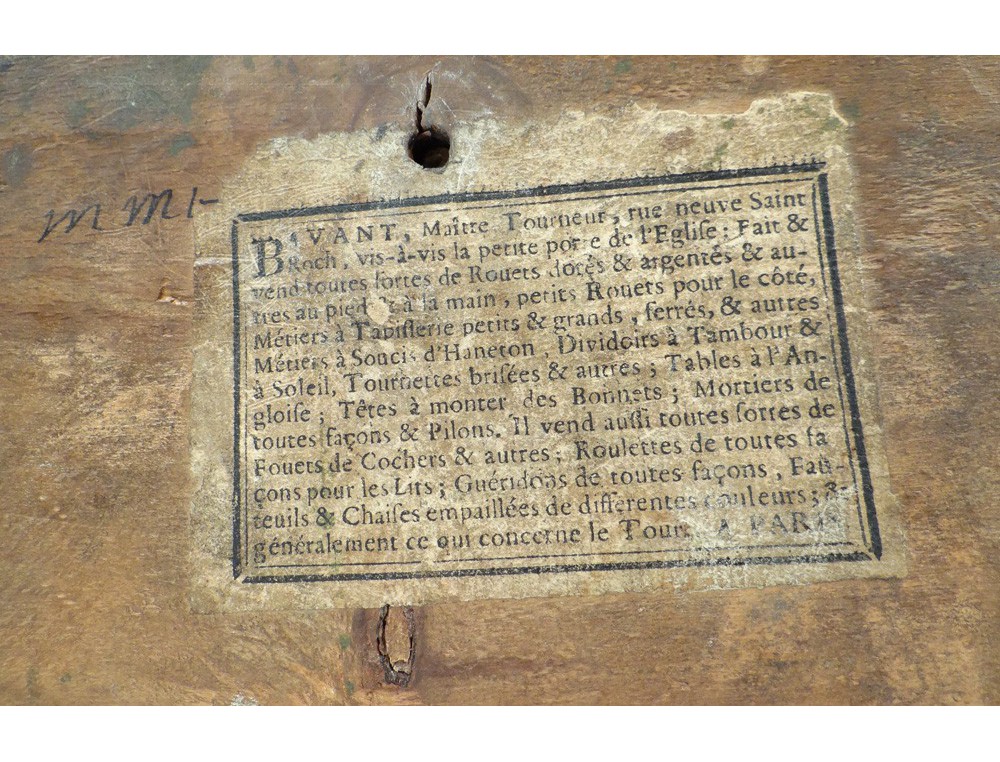 m m 1-
BAVANT, Maître Tourneur, rue neuve Saint
Roch, vis-à-vis la petite porte de l'Egliſe; Fait &
vend toutes ſortes de Rouets dorés & argentés & au-
tres au pied & à la main, petits Rouets pour le côté,
Métiers à Tapiſſerie petits & grands, ferrés, & autres
Métiers à Soucis d'Haneton, Dividoirs à Tambour &
à Soleil, Tournettes briſées & autres; Tables à l'An-
gloiſe; Têtes à monter des Bonnets; Mortiers de
toutes façons & Pilons. Il vend auſſi toutes ſortes de
Fouets de Cochers & autres; Roulettes de toutes fa
çons pour les Lits; Guéridons de toutes façons, Fau-
teuils & Chaiſes empaillées de différentes couleurs; &
généralement ce qui concerne le Tour. A PARIS